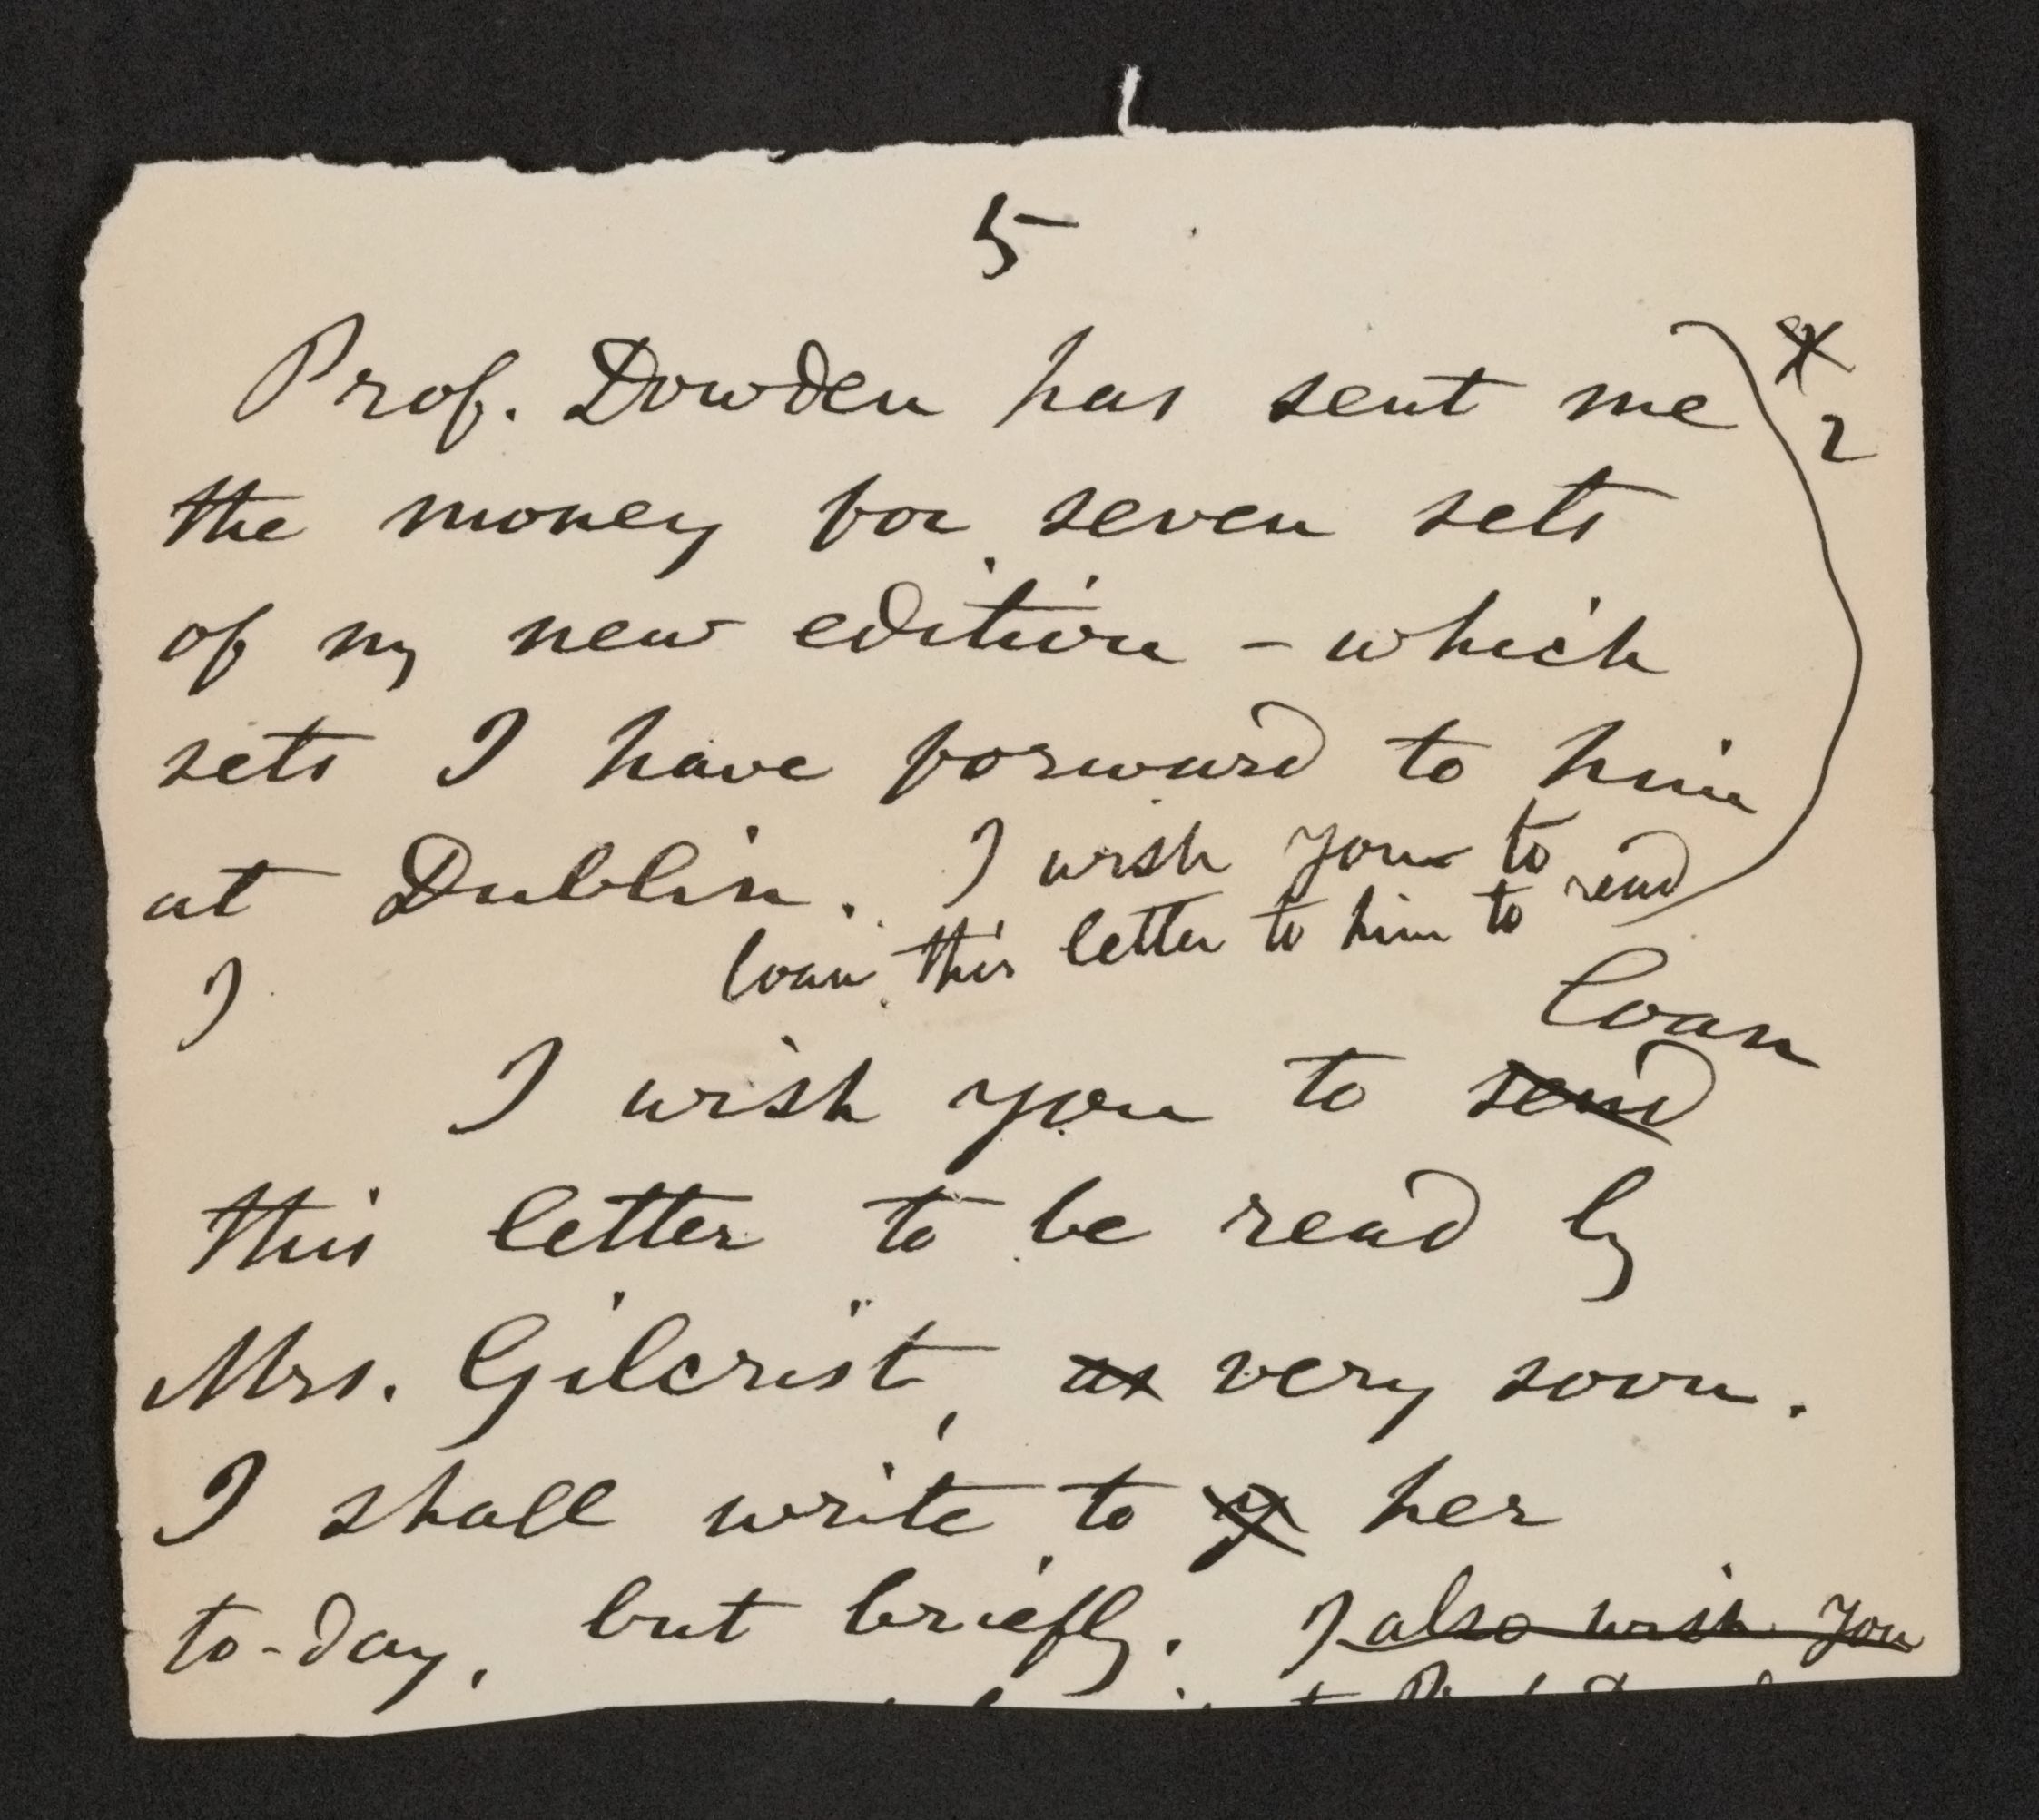 5
Prof. Dowden has sent me
2
the money for seven sets
of my new edition – which
sets I have forward to him
at Dublin. I wish you to
loan this letter to him to read
I
loan
I wish you to send
this letter to be read by
Mrs. Gilcrist, as very soon.
I shall write to y her
to-day, but briefly. I also wish you